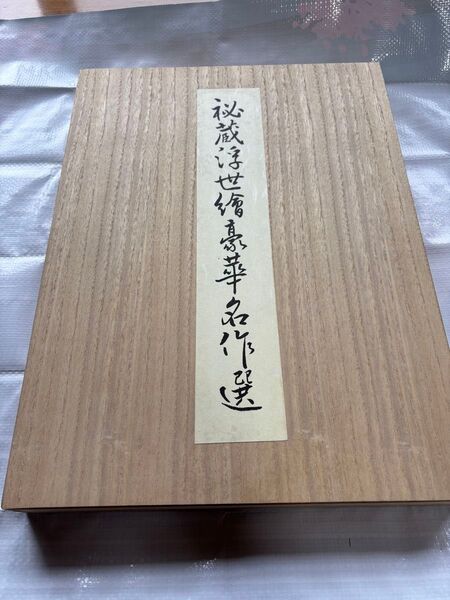 秘蔵浮世繪豪華名作選